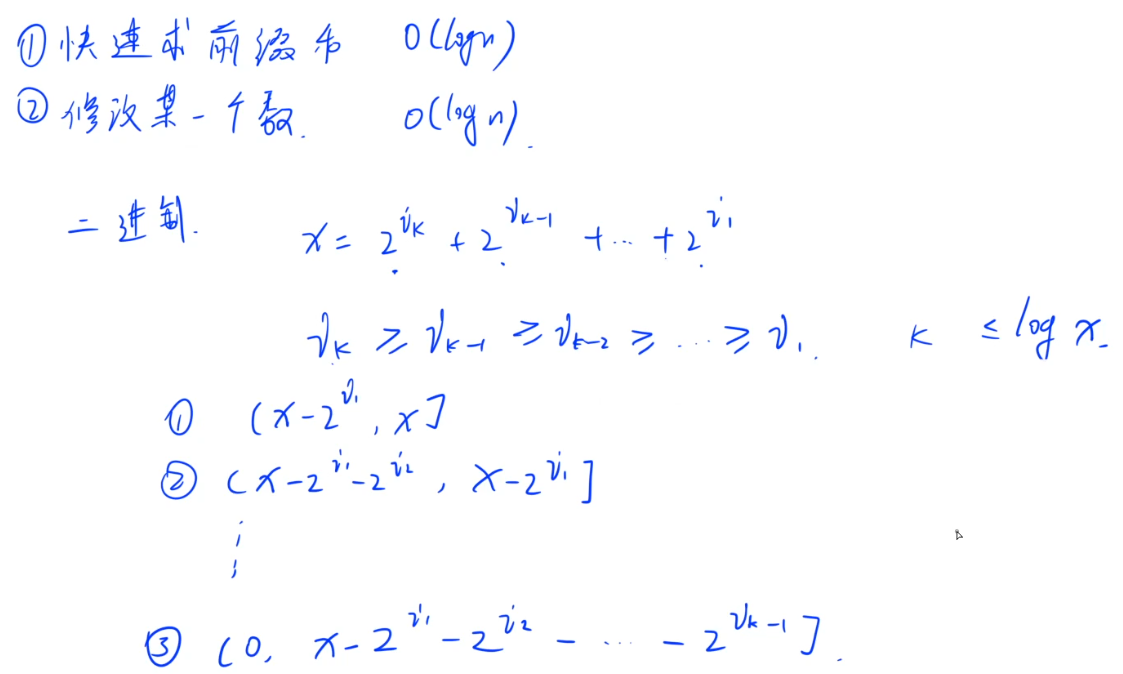 ① 快速求前缀和 O(logn)
② 修改某一个数. O(log n).
二进制. x = 2^{i_k} + 2^{i_{k-1}} + … + 2^{i_1}
i_k ≥ i_{k-1} ≥ i_{k-2} ≥ … ≥ i_1. k ≤ log x.
① (x-2^{i_1}, x]
② (x-2^{i_1}-2^{i_2}, x-2^{i_1}]
⋮
③ (0, x-2^{i_1}-2^{i_2}-…-2^{i_{k-1}}].